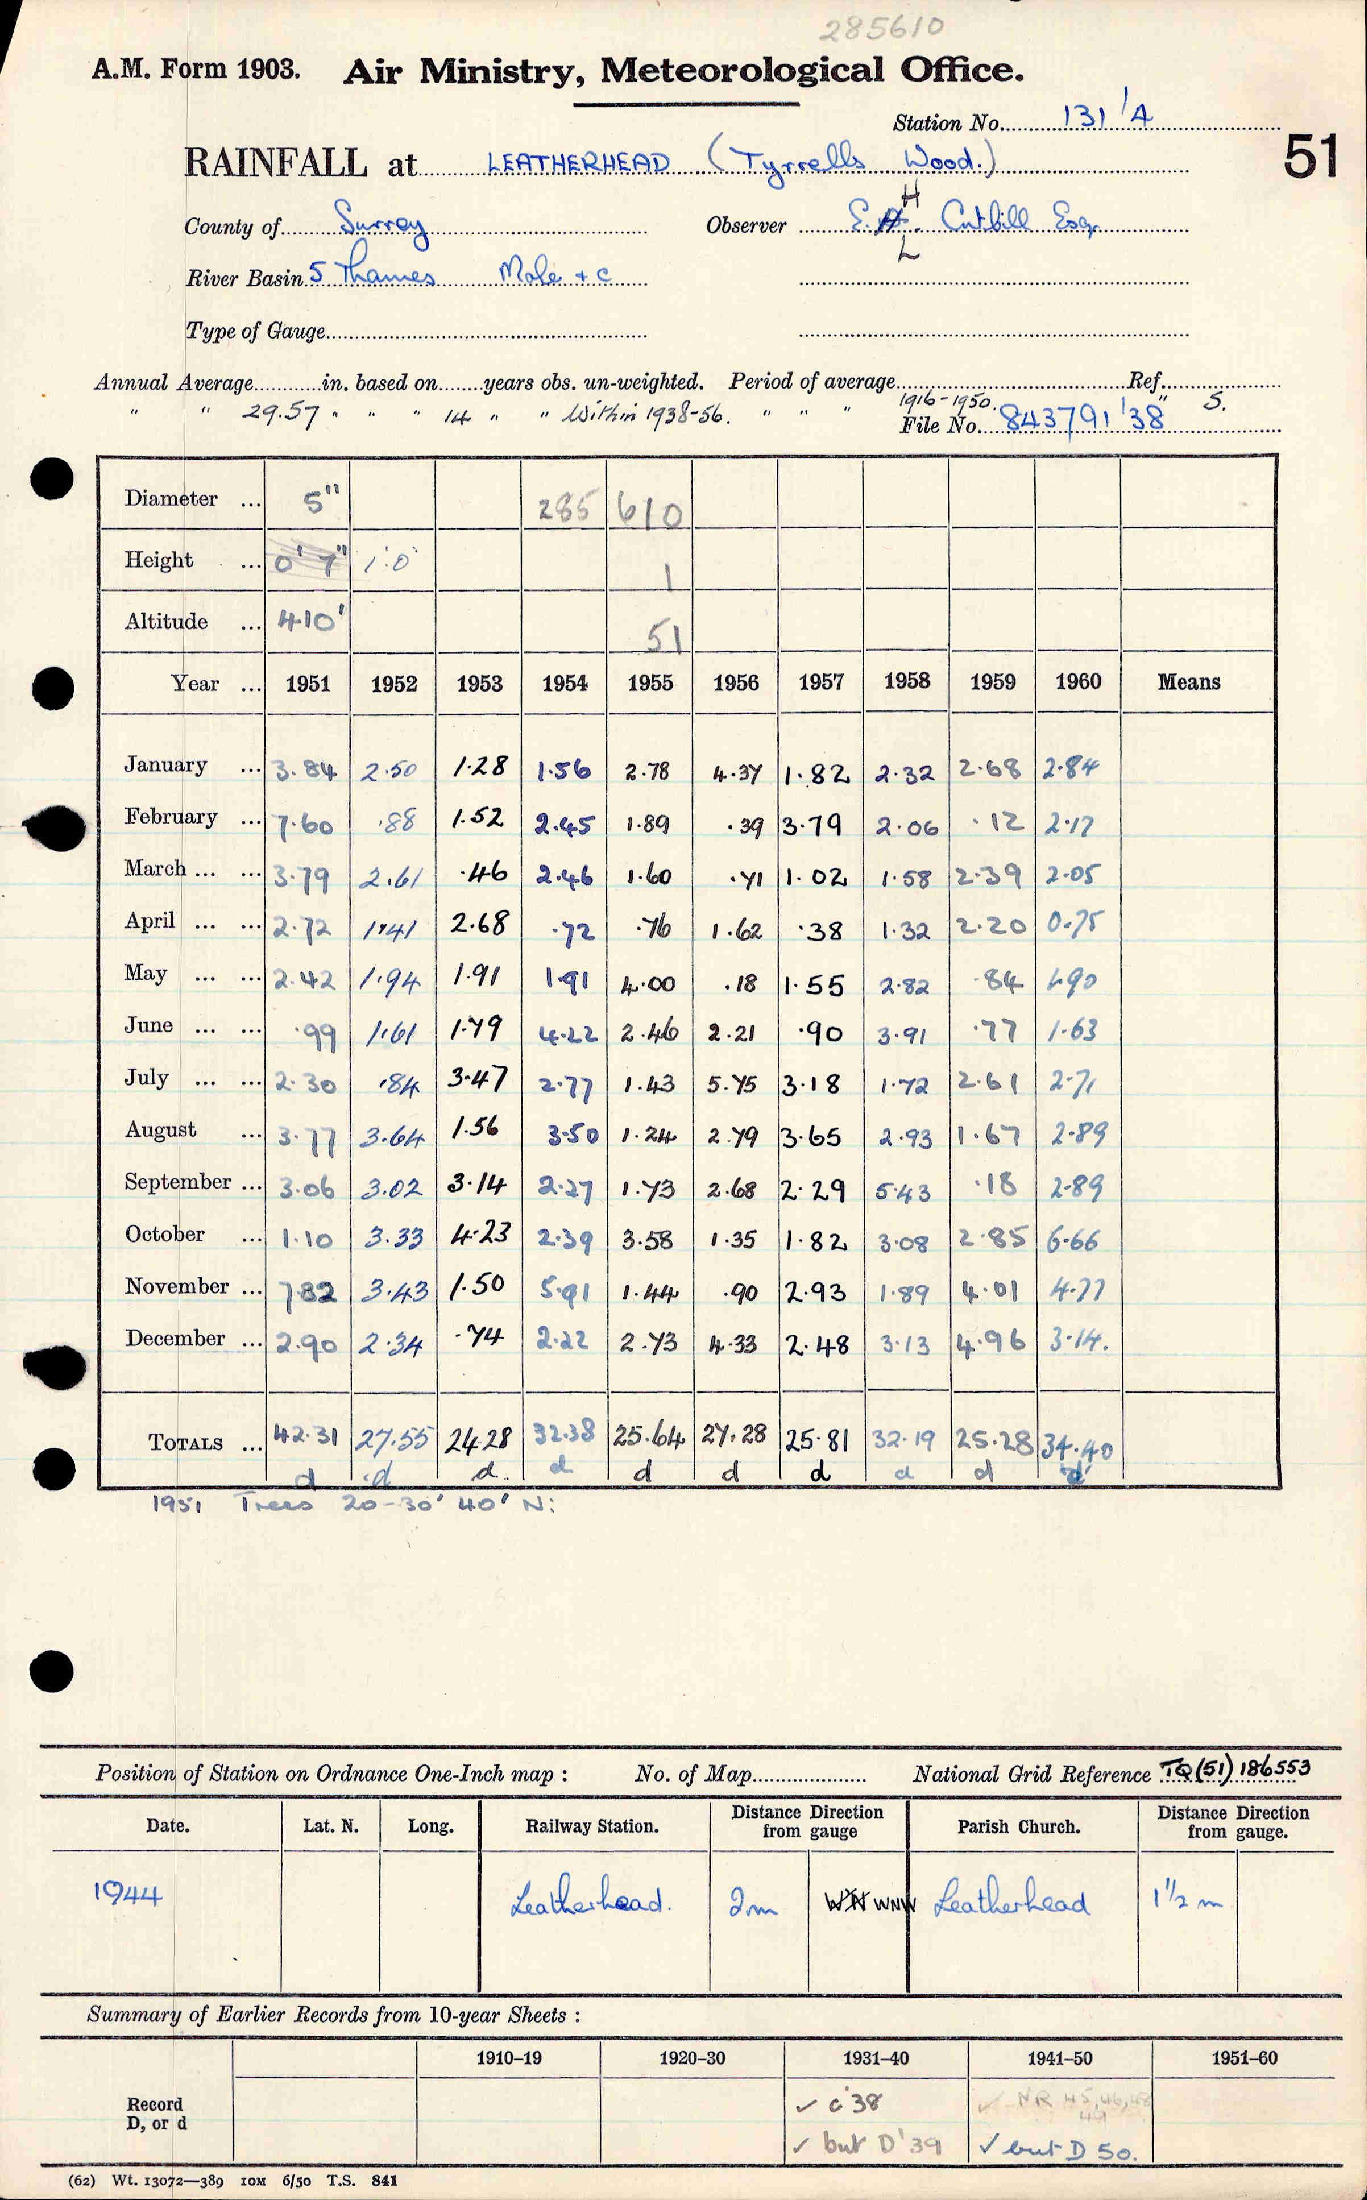 285610
A.M. Form 1903. Air Ministry, Meteorological Office.
Station No. 131/4
51
RAINFALL at LEATHERHEAD (Tyrrells Wood.)
H
County of Surrey Observer E. A. Cutbill Esq.
L
River Basin 5 Thames Mole + c
Type of Gauge
Annual Average in. based on years obs. un-weighted. Period of average Ref.
" " 29.57 " " " 14 " " Within 1938-56. " " " 1916-1950. " S.
File No. 843791/38
Diameter ... 5" 285 610
Height ... 0' 7" 1'.0" 1
Altitude ... 410' 51
Year ... 1951 1952 1953 1954 1955 1956 1957 1958 1959 1960 Means
January ... 3.84 2.50 1.28 1.56 2.78 4.37 1.82 2.32 2.68 2.84
February ... 7.60 .88 1.52 2.45 1.89 .39 3.79 2.06 .12 2.17
March ... ... 3.79 2.61 .46 2.46 1.60 .71 1.02 1.58 2.39 2.05
April ... ... 2.72 1.41 2.68 .72 .76 1.62 .38 1.32 2.20 0.75
May ... ... 2.42 1.94 1.91 1.91 4.00 .18 1.55 2.82 .84 1.90
June ... ... .99 1.61 1.79 4.22 2.46 2.21 .90 3.91 .77 1.63
July ... ... 2.30 .84 3.47 2.77 1.43 5.75 3.18 1.72 2.61 2.71
August ... 3.77 3.64 1.56 3.50 1.24 2.79 3.65 2.93 1.67 2.89
September ... 3.06 3.02 3.14 2.27 1.73 2.68 2.29 5.43 .18 2.89
October ... 1.10 3.33 4.23 2.39 3.58 1.35 1.82 3.08 2.85 6.66
November ... 7.82 3.43 1.50 5.91 1.44 .90 2.93 1.89 4.01 4.77
December ... 2.90 2.34 .74 2.22 2.73 4.33 2.48 3.13 4.96 3.14.
TOTALS ... 42.31 27.55 24.28 32.38 25.64 27.28 25.81 32.19 25.28 34.40
d d d. d d d d d d d
1951 Trees 20-30' 40' N:
Position of Station on Ordnance One-Inch map : No. of Map National Grid Reference TQ(51)186553
Date. Lat. N. Long. Railway Station. Distance Direction from gauge Parish Church. Distance Direction from gauge.
1944 Leatherhead. 2m WNW Leatherhead 1½ m
Summary of Earlier Records from 10-year Sheets :
1910–19 1920–30 1931–40 1941–50 1951–60
Record ✓ c '38 ✓ NR 45,46,48
49
D, or d ✓ but D '39 ✓ but D 50.
(62) Wt. 13072—389 10M 6/50 T.S. 841